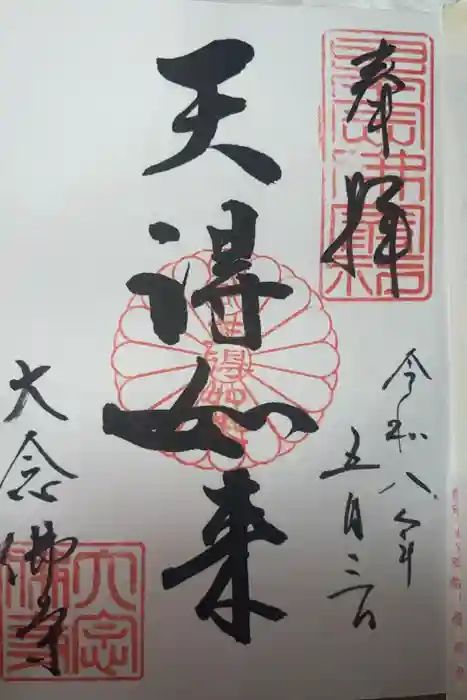 奉拝
令和八年
五月三日
天得如来
大念佛寺
大念佛寺